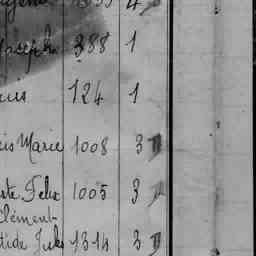 Joseph 388 1
uis 124 1
uis Marie 1008 3
ste Felix 1005 3
Clément
tide Jules 1314 3